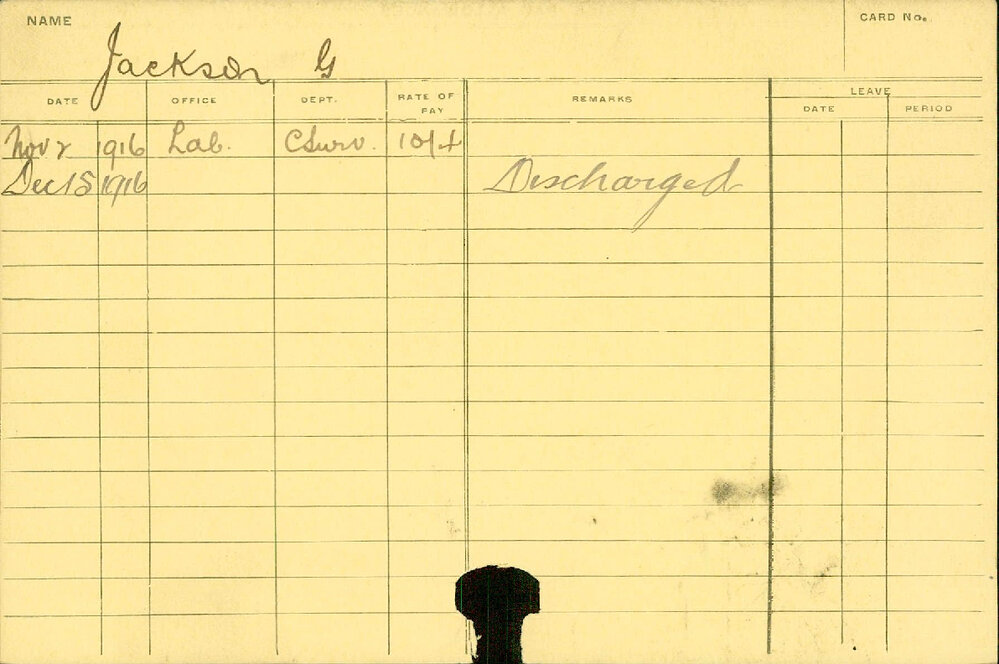 NAME
CARD No.
Jackson G
DATE OFFICE DEPT. RATE OF PAY REMARKS LEAVE
DATE PERIOD
Nov 2 1916 Lab. CSurv. 10/4
Dec 15 1916 Discharged